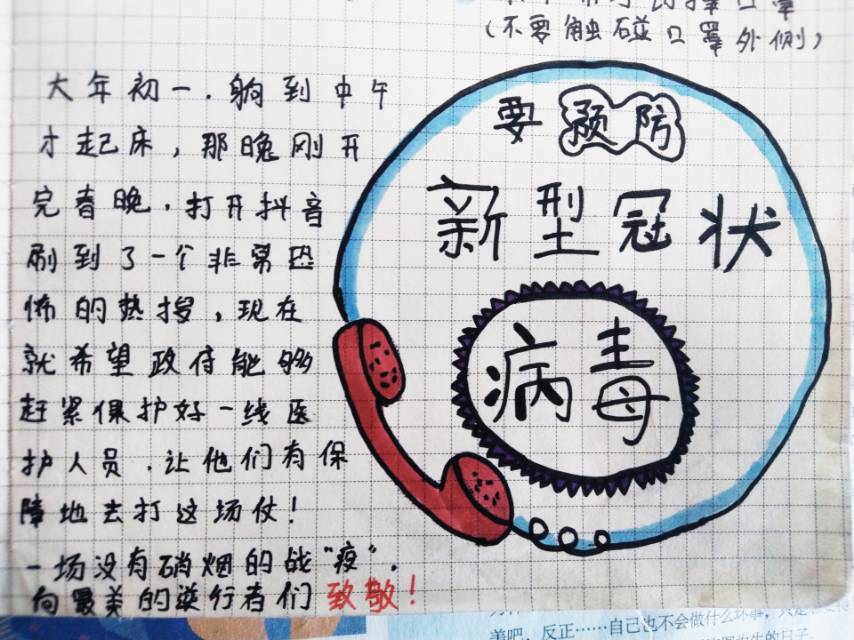 (不要触碰口罩外侧)
大年初一.躺到中午
才起床,那晚刚开
完春晚.打开抖音
刷到了一个非常恐
怖的热搜,现在
就希望政府能够
赶紧保护好一线医
护人员.让他们有保
障地去打这场仗!
一场没有硝烟的战"疫".
向最美的逆行者们致敬!
要预防
新型冠状
病毒
善吧,反正……自己也不会做什么坏事,